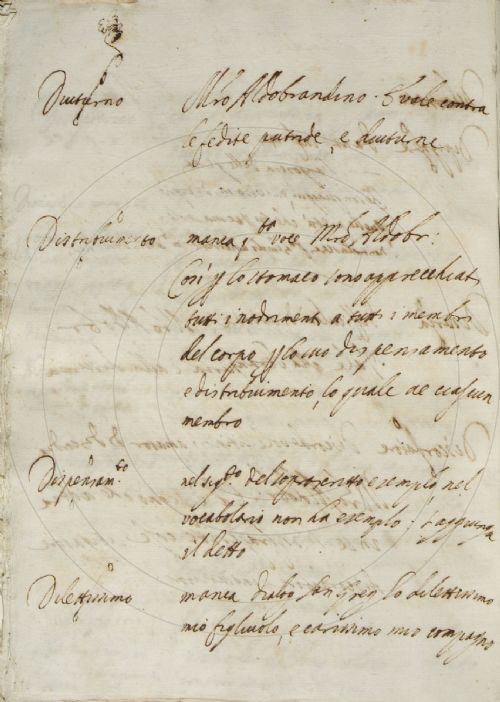 Diuturno Mro Aldobrandino. E vale contra
le fedite putride, e diuturne
Distribuimento manca qta voce Mro Aldobr:
Così p lo stomaco sono apparecchiati
tutti i nodrimenti a tutti i membri
del corpo p lo suo dispensamento
e distribuimento, lo quale ae ciascun
membro
Dispensamto nel sigto del soprascritto esemplo, nel
vocabolario non ha esemplo; s'aggiunga
il detto
Dilettissimo manca dialog San Greg lo dilettissimo
mio figliuolo, e carissimo mio compagno